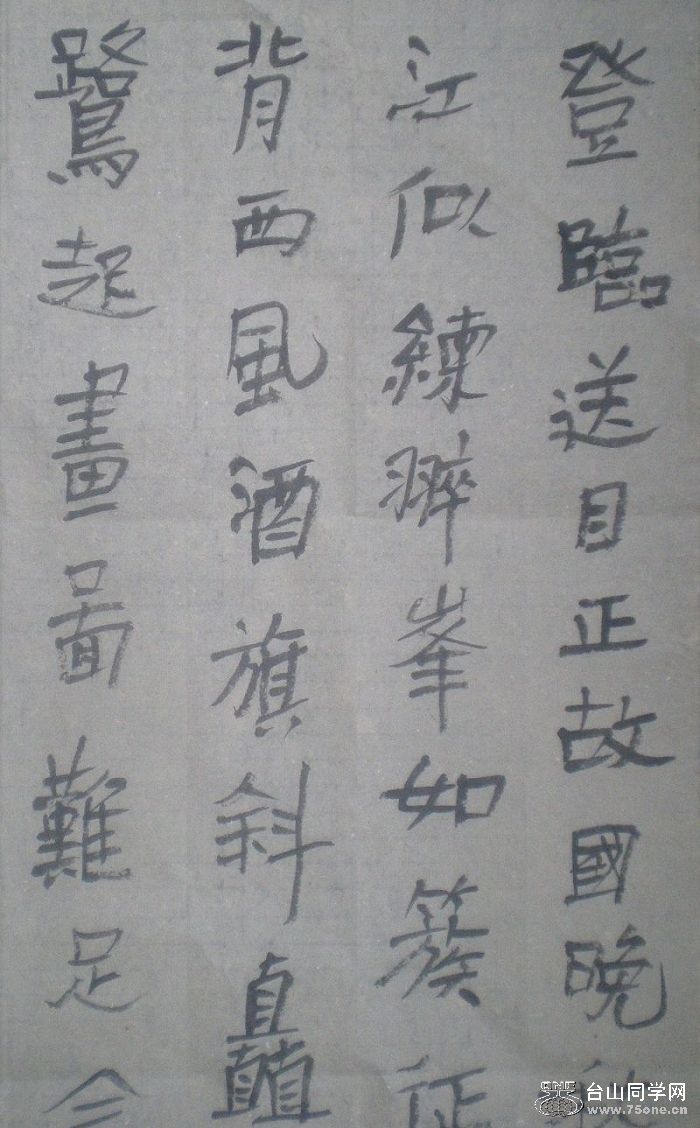 登臨送目正故國晚秋
江似練翠峯如簇征
背西風酒旗斜矗
鷺起畫啚難足念
台山同学网
www.75one.cn